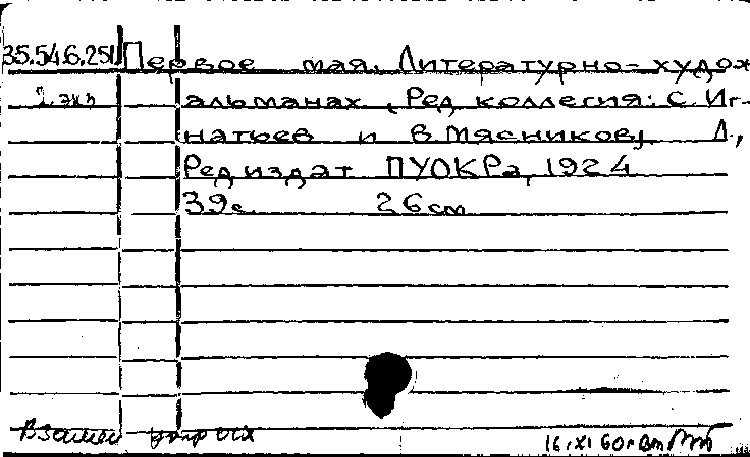 35.54.6.251 Первое мая. Литературно-худож
2 экз альманах. Ред коллегия: С. Иг-
натьев и В. Мясников, Л.,
Ред издат ПУОКРа, 1924
39с 26 см
Взамен
16.XI 60г